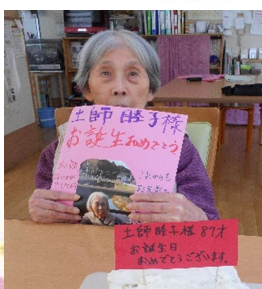 土師睦子様
お誕生日おめでとう
これからも
土師睦子様 87才
お誕生日
おめでとうございます。